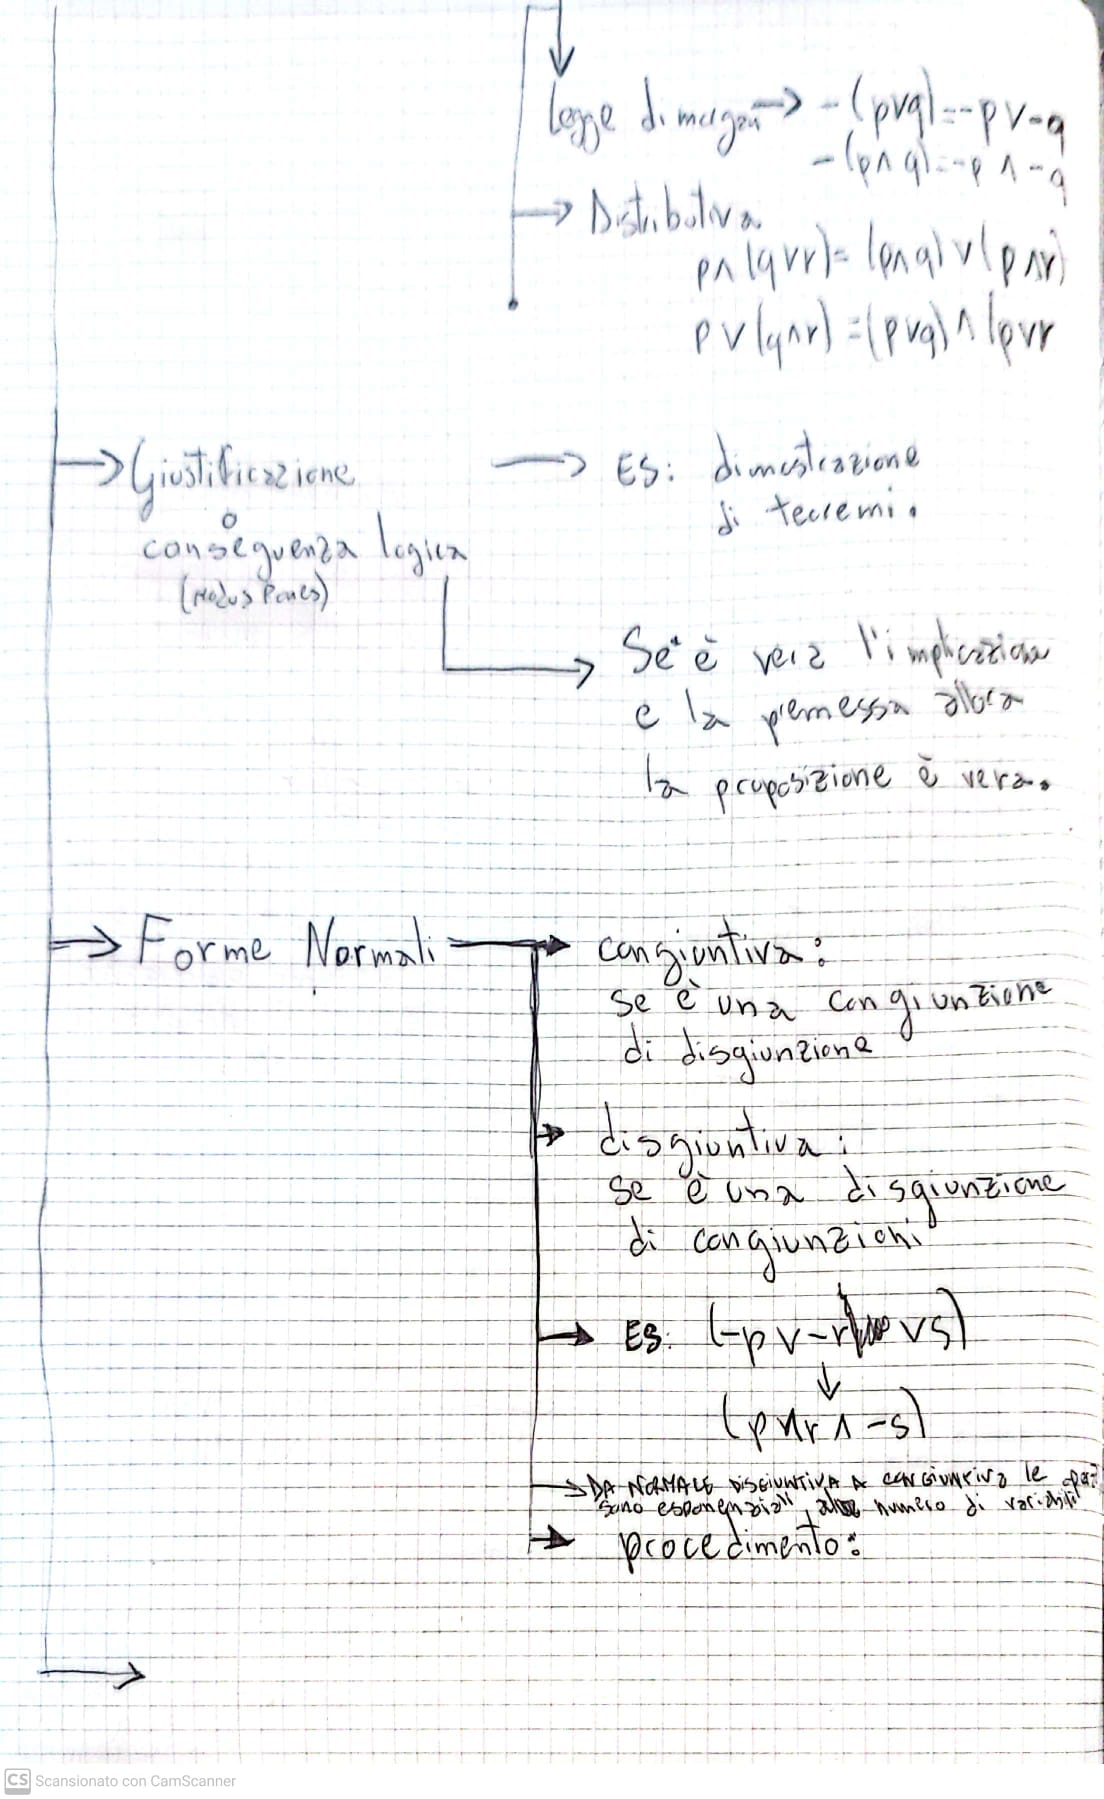 Legge di morgan → -(p∨q)=-p∨-q
-(p∧q)=-p∧-q
→ Distributiva
p∧(q∨r)=(p∧q)∨(p∧r)
p∨(q∧r)=(p∨q)∧(p∨r
→ Giustificazione → ES: dimostrazione
di teoremi.
o
conseguenza logica
(Modus Pones)
Se è vera l'implicazione
e la premessa allora
la proposizione è vera.
→ Forme Normali → congiuntiva:
se è una congiunzione
di disgiunzione
→ disgiuntiva:
se è una disgiunzione
di congiunzioni
→ ES: (-p∨-r ∨s)
↓
(p∧r∧-s)
→ DA NORMALE DISGIUNTIVA A CONGIUNTIVA le
sono esponenziali numero di variabili
→ procedimento:
CS Scansionato con CamScanner